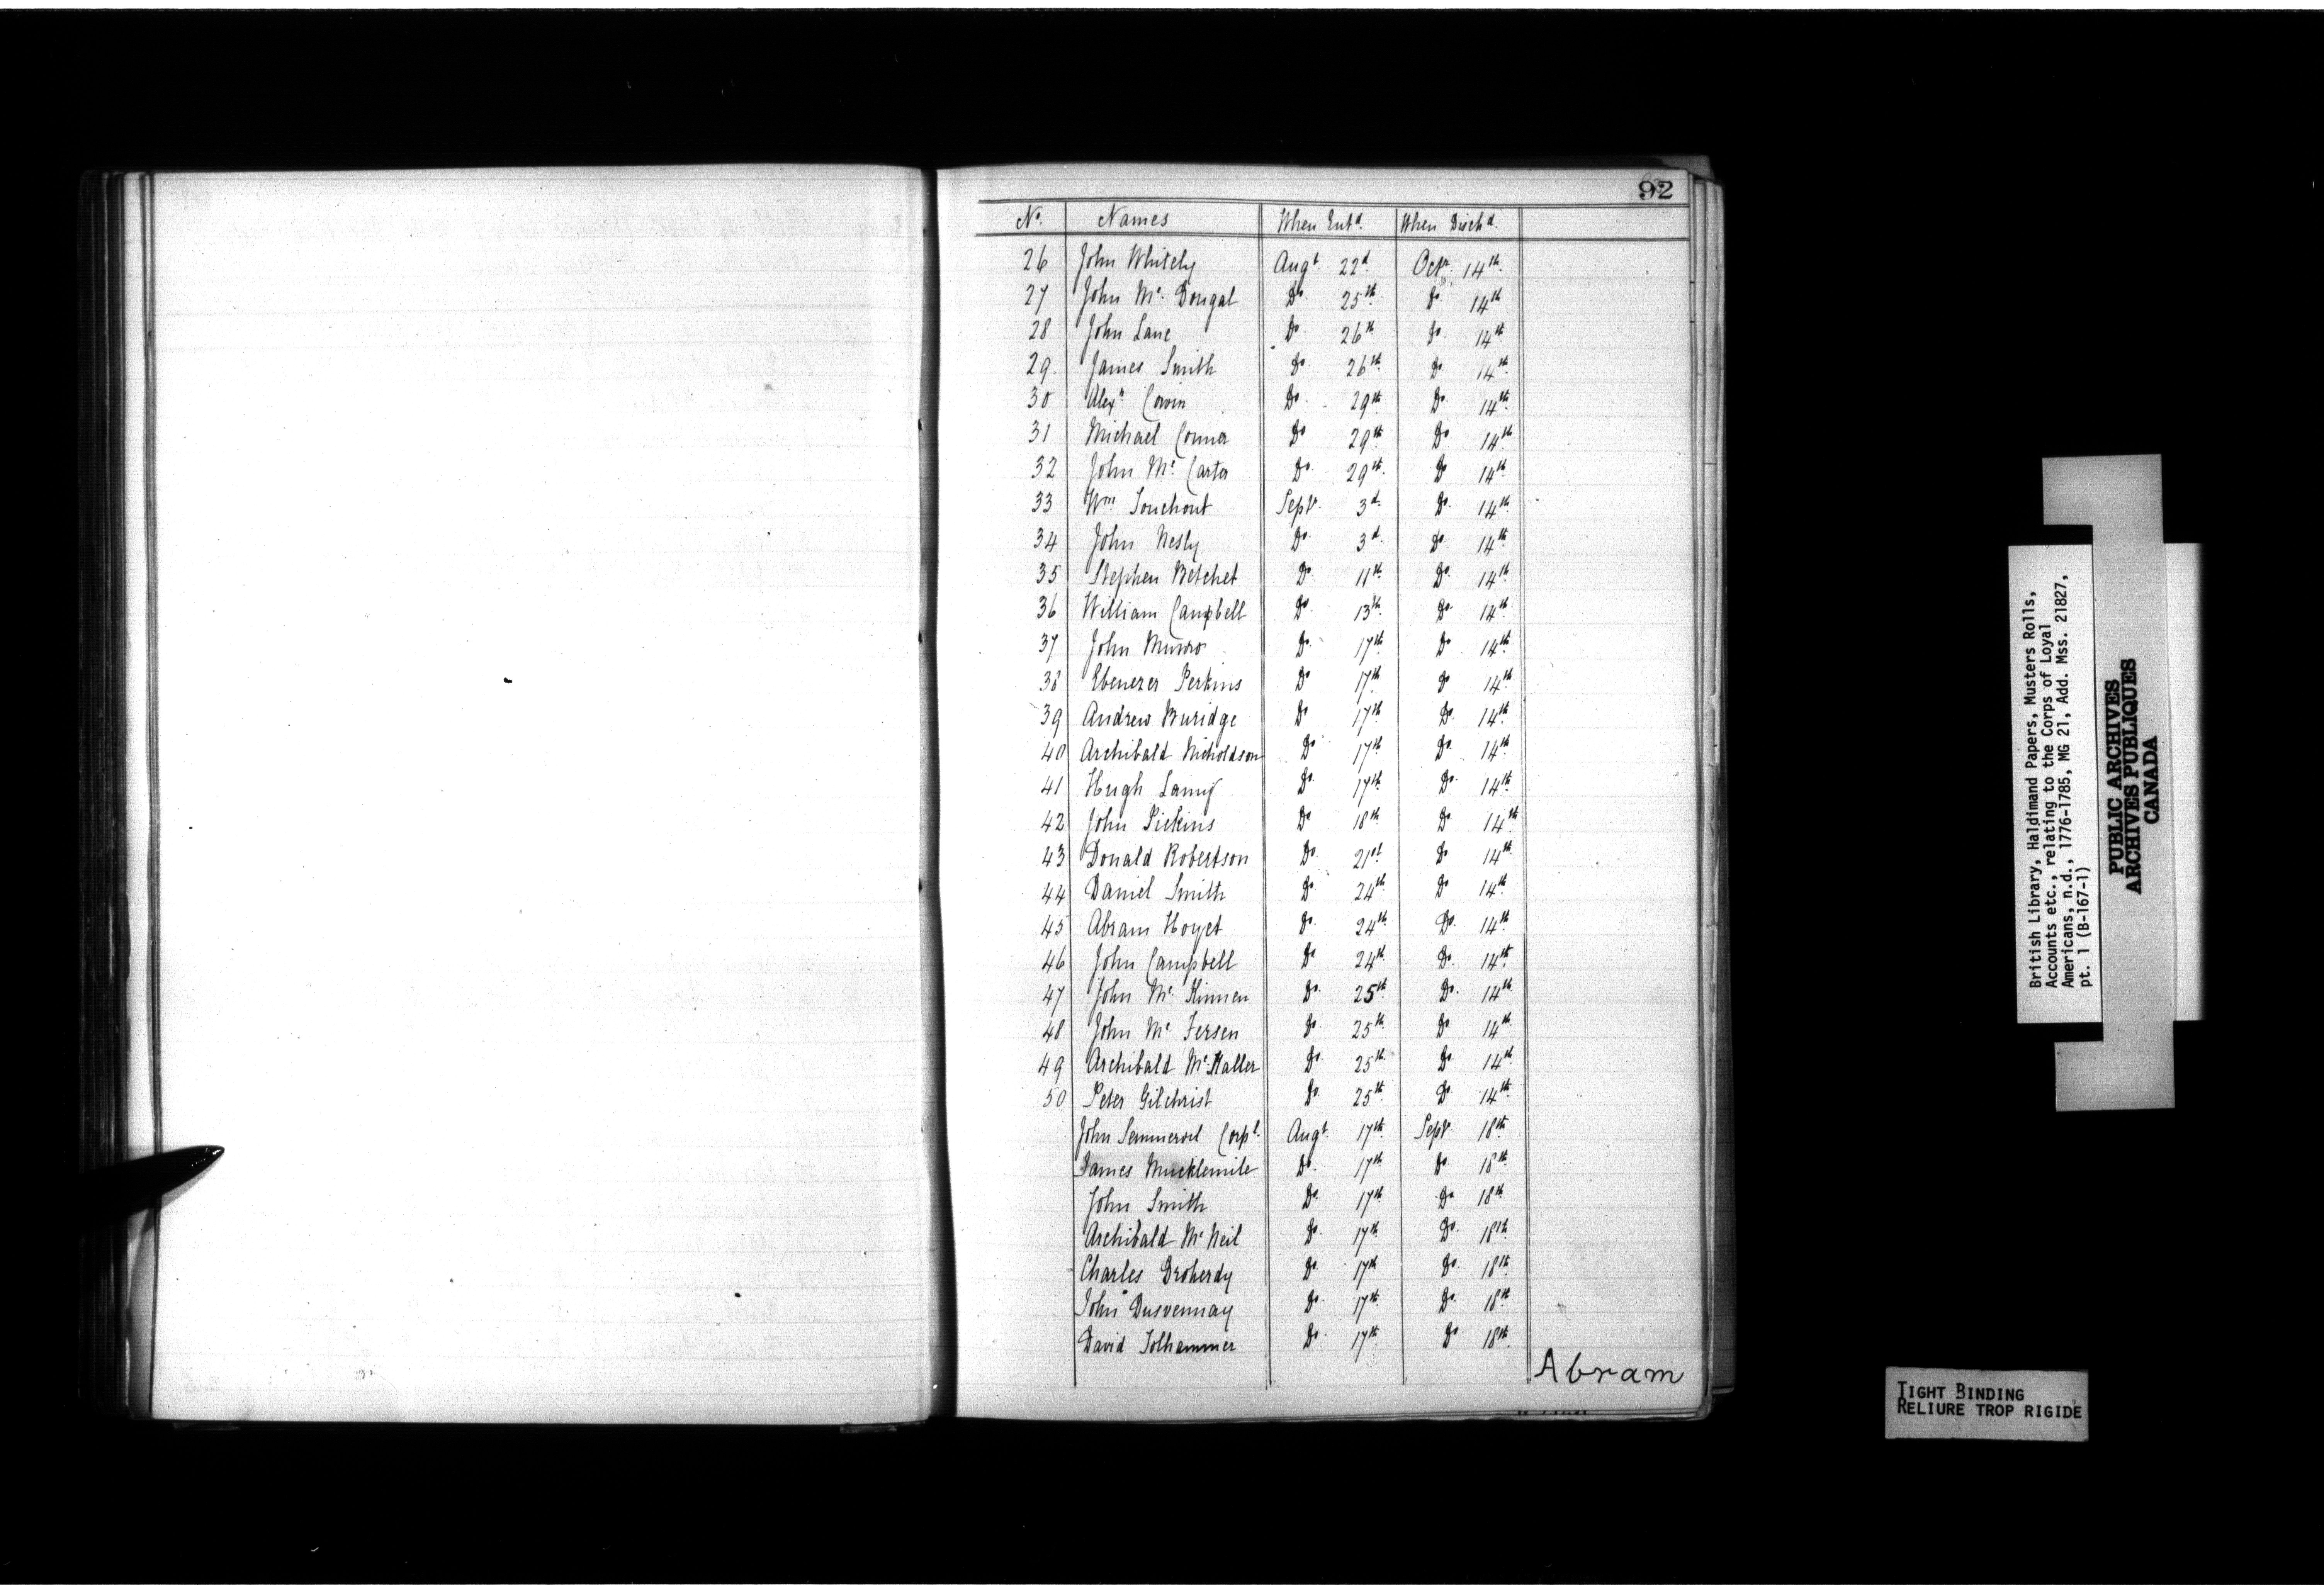 92
No. Names When Entd. When Dischd.
26 John Whitely Augt. 22d. Octr. 14th.
27 John Mc. Dougal Do. 25th. Do. 14th
28 John Lane Do 26th. Do. 14th
29. James Smith Do. 26th. Do. 14th.
30 Alexr Corvin Do. 29th. Do. 14th.
31 Michael Conner Do 29th. Do 14th
32 John Mc. Carter Do. 29th. Do 14th
33 Wm Souchout Septr. 3d. Do. 14th.
34 John Nesly Do. 3d. Do. 14th.
35 Stephen Betchet Do. 11th. Do. 14th
36 William Campbell Do. 13th. Do. 14th
37 John Munro Do. 17th. Do 14th.
38 Ebenezer Perkins Do 17th. Do 14th.
39 Andrew Buridge Do 17th. Do. 14th.
40 Archibald Nicholdson Do 17th. Do. 14th.
41 Hugh Do. 17th. Do. 14th.
42 John Pickins Do 18th. Do. 14th
43 Donald Robertson Do. 21st. Do 14th.
44 Daniel Smith Do. 24th. Do 14th.
45 Abram Hoyet Do. 24th. Do. 14th.
46 John Campbell Do 24th. Do. 14th.
47 John Mc. Kinnen Do. 25th. Do. 14th.
48 John Mc. Fersen Do. 25th. Do 14th.
49 Archibald Mc. Kaller Do. 25th. Do. 14th.
50 Peter Gilchrist Do. 25th. Do. 14th.
John Semmervil Corpl. Augt. 17th. Septr. 18th.
James Mucklemile Do. 17th. Do. 18th.
John Smith Do. 17th. Do 18th.
Archibald Mc Neil Do. 17th. Do. 18th.
Charles Droherdy Do. 17th Do. 18th.
John Dusvennay Do. 17th. Do. 18th
David Tolhammer Do. 17th. Do 18th.
Abram
British Library, Haldimand Papers, Musters Rolls,
Accounts etc., relating to the Corps of Loyal
Americans, n.d., 1776-1785, MG 21, Add. Mss. 21827,
pt. 1 (B-167-1)
PUBLIC ARCHIVES
ARCHIVES PUBLIQUES
CANADA
TIGHT BINDING
RELIURE TROP RIGIDE